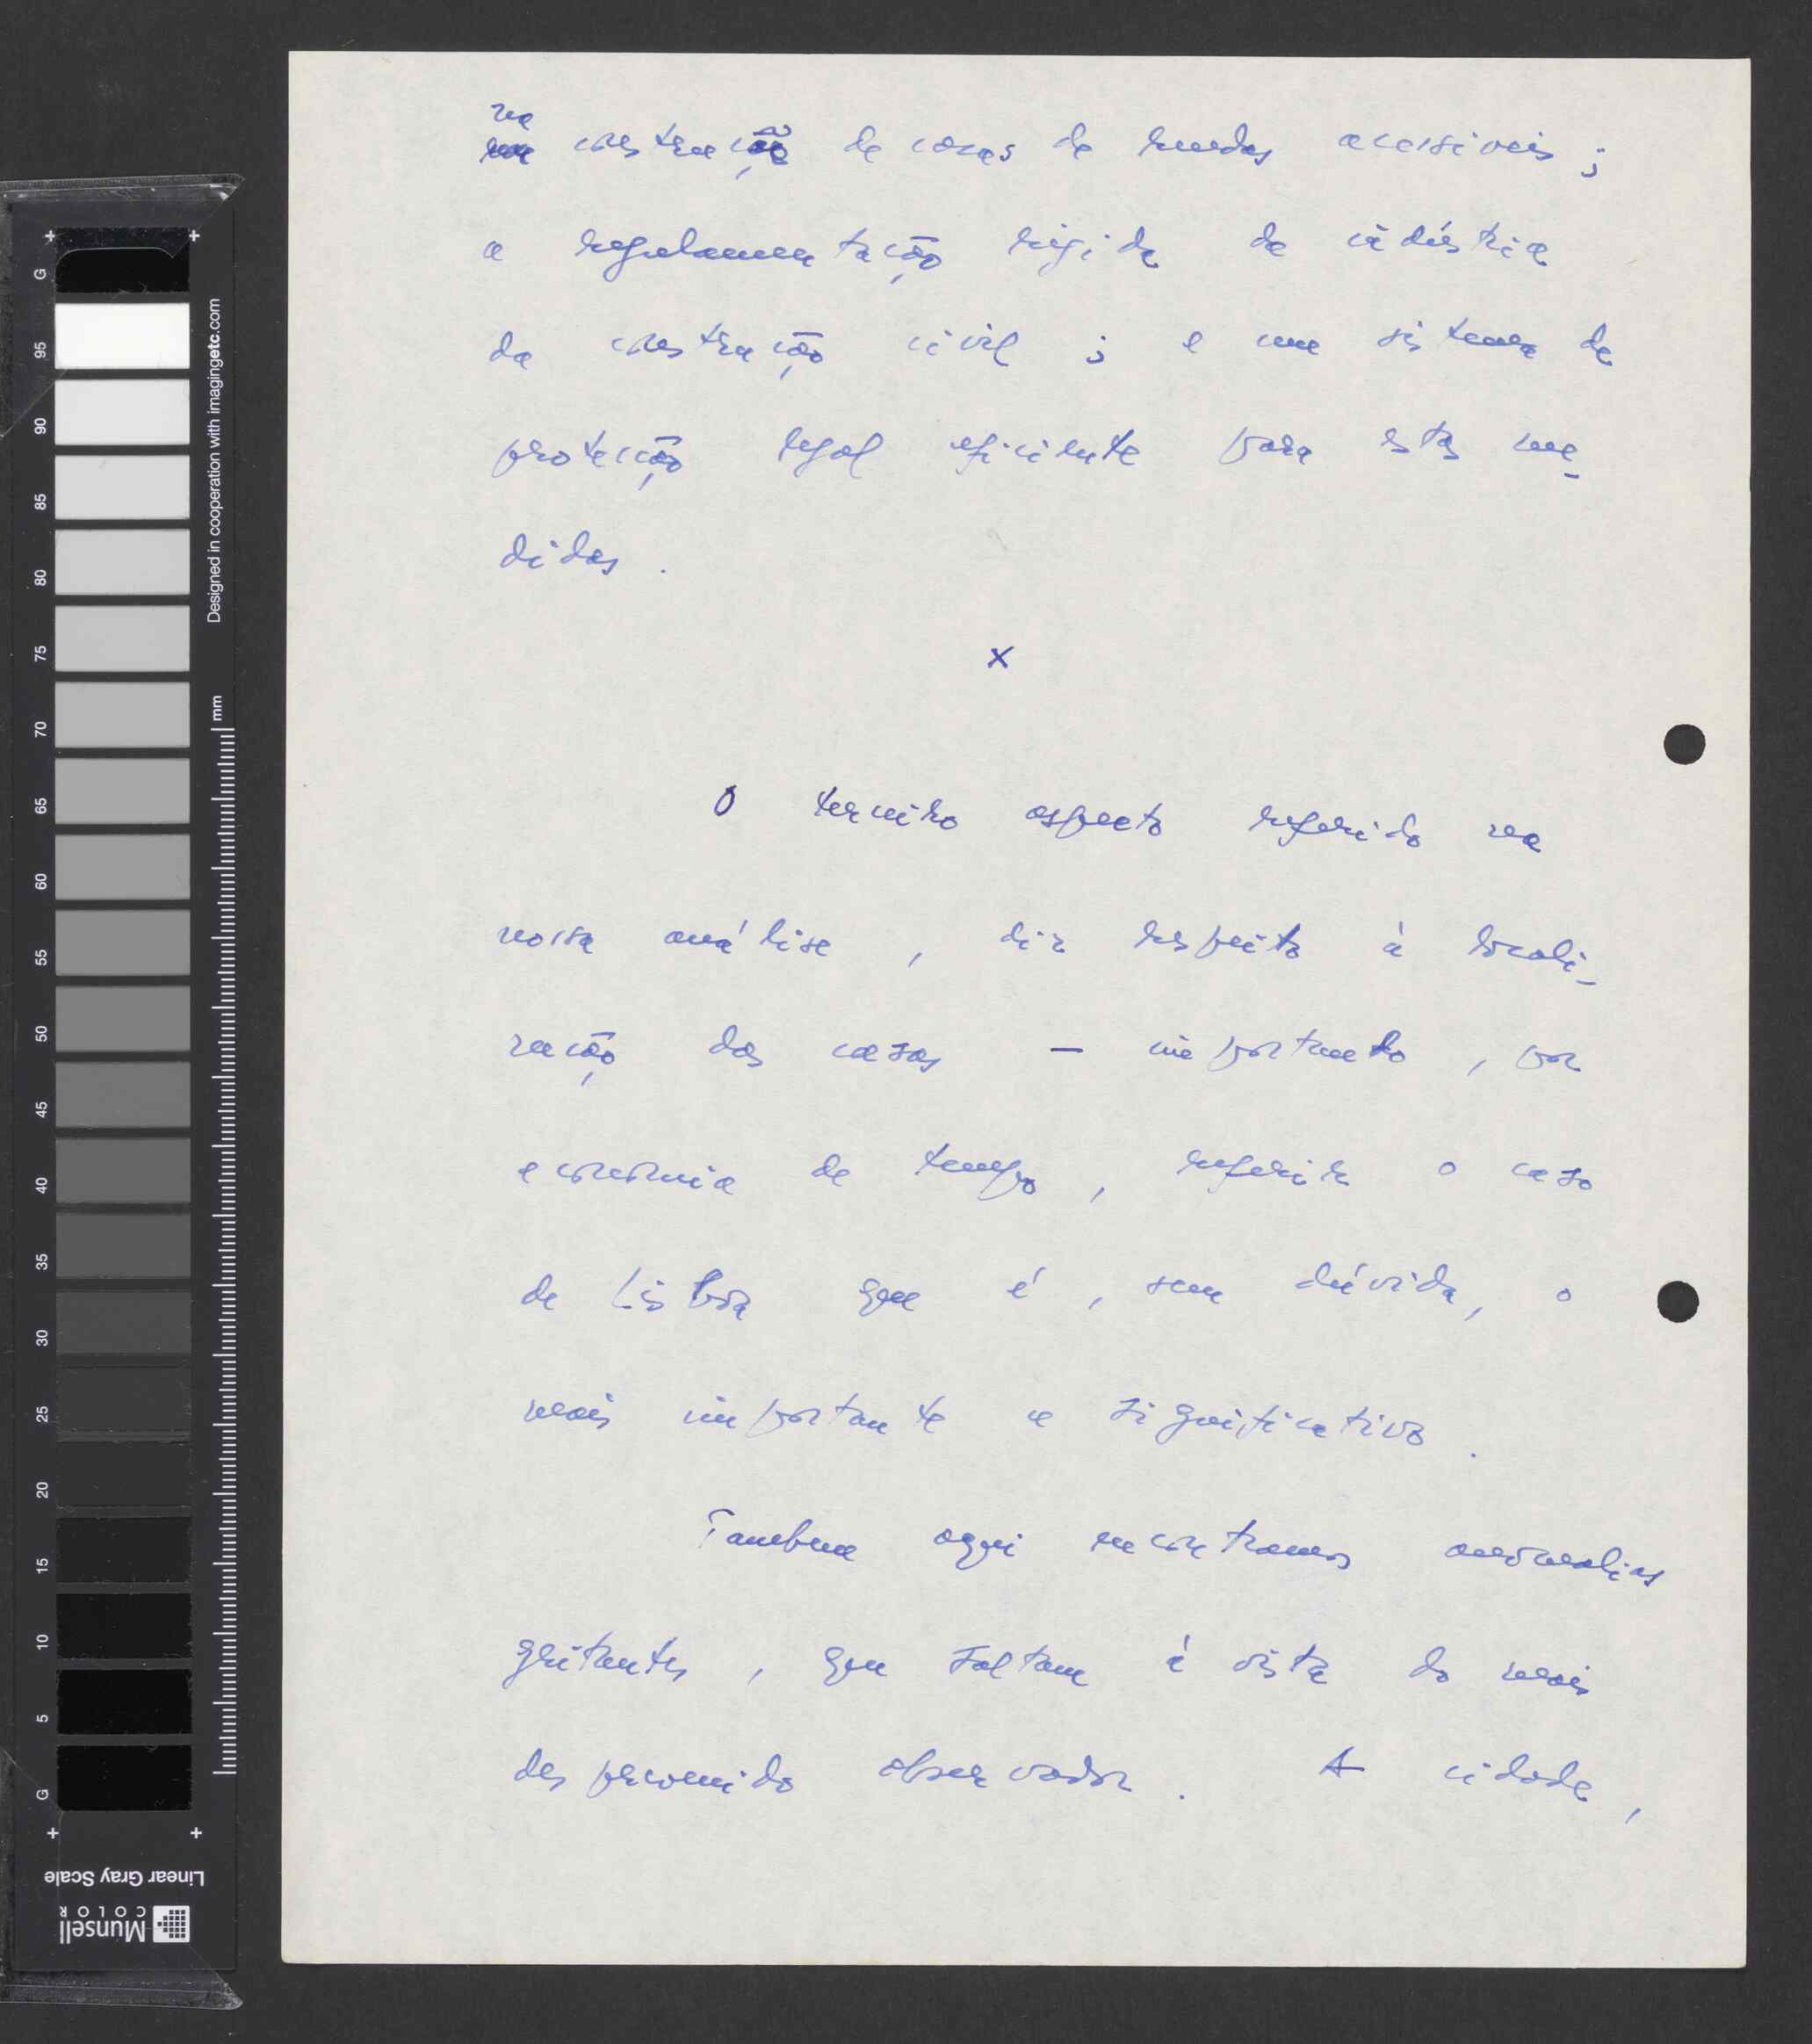 na
construção de casas de rendas acessíveis ;
a regulamentação rígida da indústria
da construção civil ; e um sistema de
protecção legal eficiente para estas me-
didas .
x
O terceiro aspecto referido na
nossa análise , diz respeito à locali-
zação das casas — importando , por
economia de tempo , referir o caso
de Lisboa que é , sem dúvida , o
mais importante e significativo .
Tambem aqui encontramos anomalias
gritantes , que saltam à vista do mais
desprevenido observador . A cidade ,
G
95
90
85
80
75
70
65
60
55
50
45
40
35
30
25
20
15
10
5
G
Designed in cooperation with imagingetc.com
mm
Linear Gray Scale
Munsell
COLOR